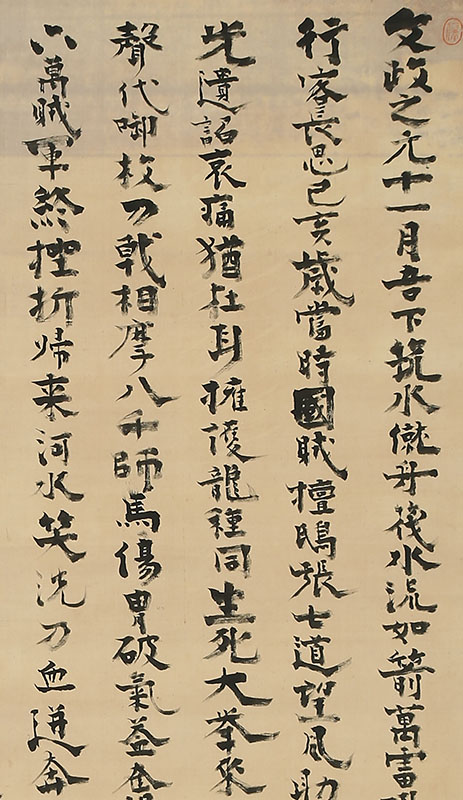 文政之元十一月吾下筑水僦舟筏水流如箭萬雷
行客長思己亥歳當時國賊擅鴟張七道望風助
光遺詔哀痛猶在耳擁護龍種同生死大挙来
聲代啣枚刀戟相摩八千師馬傷冑破氣益奮
六萬賊軍終挫折帰来河水笑洗刀血迸奔